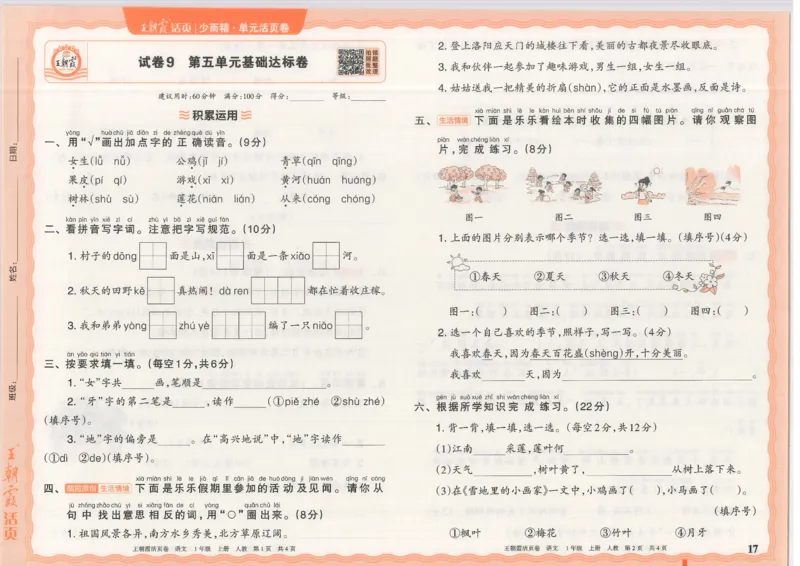 王朝霞活页 | 少而精·单元活页卷
王朝霞
试卷9 第五单元基础达标卷
建议用时:60分钟 满分:100分 得分:______ 等级:______
积累运用
yòng huà chū jiā diǎn zì de zhèng què dú yīn
一、用“√”画出加点字的正确读音。(9分)
女生(lǚ nǚ) 公鸡(jī jí) 青草(qīn qīng)
果皮(pí qí) 游戏(xī xì) 黄河(huán huáng)
树林(shù sù) 莲花(nián lián) 从来(cóng cháng)
kàn pīn yīn xiě zì cí zhù yì bǎ zì xiě guī fàn
二、看拼音写字词。注意把字写规范。(10分)
1.村子的dōng 面是山,xī 面是一条xiǎo 河。
2.秋天的田野kě 真热闹! dà ren 都在忙着收庄稼。
3.我和弟弟yòng zhú yè 编了一只niǎo 。
àn yāo qiú tián yi tián
三、按要求填一填。(每空1分,共6分)
1.“女”字共______画,笔顺是______。
2.“牙”字的第二笔是______,读作______(①piě zhé ②shù zhé)
(填序号)。
3.“地”字的偏旁是______。在“高兴地说”中,“地”字读作______
(①dì ②de)(填序号)。
xià miàn shì lè le jià qī lǐ cān jiā de huó dòng jí jiàn wén qǐng nǐ cóng
四、 生活情境 下面是乐乐假期里参加的活动及见闻。请你从
jù zhōng zhǎo chū yì si xiāng fǎn de cí yòng quān chū lái
句中找出意思相反的词,用“○”圈出来。(8分)
1.祖国风景各异,南方水乡秀美,北方草原辽阔。
王朝霞活页卷 语文 1年级 上册 人教 第1页 共4页
2.登上洛阳应天门的城楼往下看,美丽的古都夜景尽收眼底。
3.我和伙伴一起参加了趣味游戏,男生一组,女生一组。
4.姑姑送我一把精美的折扇(shàn),它的正面是水墨画,反面是诗。
xià miàn shì lè le kàn huì běn shí shōu jí de sì fú tú piàn qǐng nǐ guān chá tú
五、 生活情境 下面是乐乐看绘本时收集的四幅图片。请你观察图
piàn wán chéng liàn xí
片,完成练习。(8分)
图一 图二 图三 图四
1.上面的图片分别表示哪个季节?选一选,填一填。(填序号)(4分)
①春天 ②夏天 ③秋天 ④冬天
图一:( ) 图二:( ) 图三:( ) 图四:( )
2.选一个自己喜欢的季节,照样子,写一写。(4分)
我喜欢春天,因为春天百花盛(shèng)开,十分美丽。
我喜欢______天,因为______。
gēn jù suǒ xué zhī shi wán chéng liàn xí
六、根据所学知识完成练习。(22分)
1.背一背,填一填,选一选。(每空2分,共12分)
(1)江南______采莲,莲叶何______。
(2)天气______,树叶黄了,______从树上落下来。
(3)在《雪地里的小画家》一文中,小鸡画了( ),小马画了( )。
(填序号)
①枫叶 ②梅花 ③竹叶 ④月牙
王朝霞活页卷 语文 1年级 上册 人教 第2页 共4页
17
日期:
姓名:
班级:
王朝霞活页